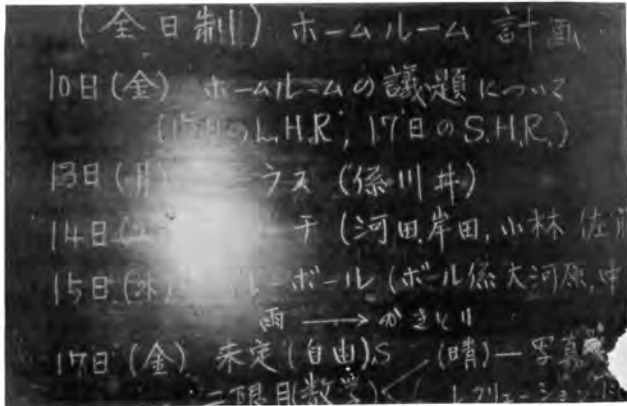 (全日制) ホームルーム 計画
10日(金) ホームルームの議題について
(15日のL.H.R, 17日のS.H.R.)
13日(月) ラス (係川井)
14日 チ (河田,岸田,小林
15日(水) レーボール (ボール係大河原,中
雨 → かきとり
17日(金) 未定(自由)S (晴)—写真
二限目(数学)< レクリエーション